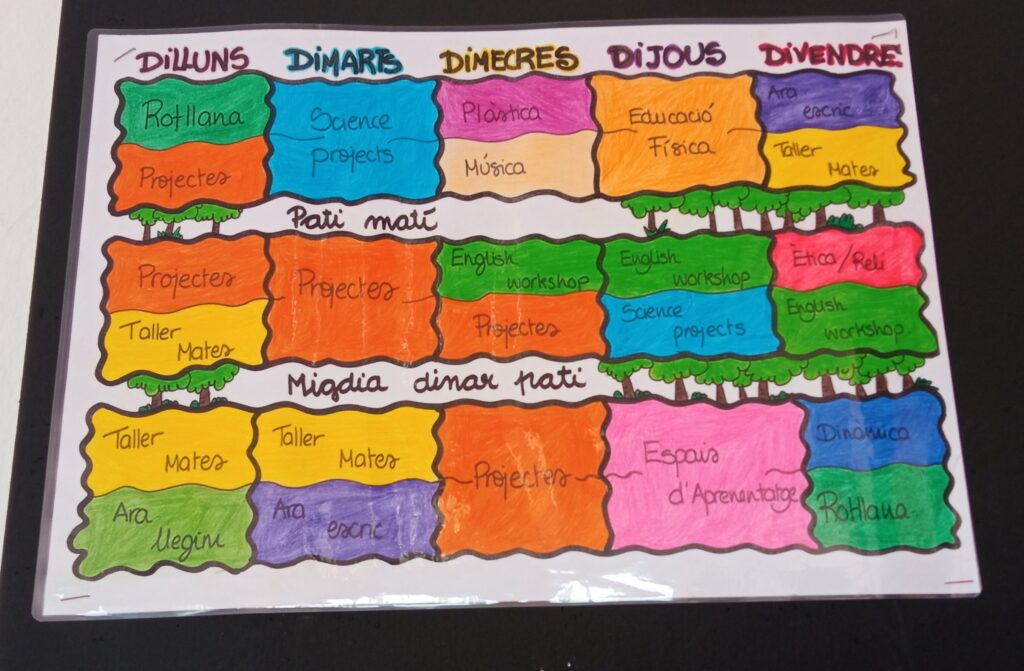 DiLLUNS DiMARTS DiMECRES DiJOUS DiVENDRE
Rotllana
Projectes
Science
projects
Plàstica
Música
Educació
Física
Ara
escric
Taller
Mates
Pati matí
Projectes
Taller
Mates
Projectes
English
workshop
Projectes
English
workshop
Science
projects
Ètica/Reli
English
workshop
Migdia dinar pati
Taller
Mates
Ara
llegim
Taller
Mates
Ara
escric
Projectes
Espais
d'Aprenentatge
Dinàmica
Rotllana